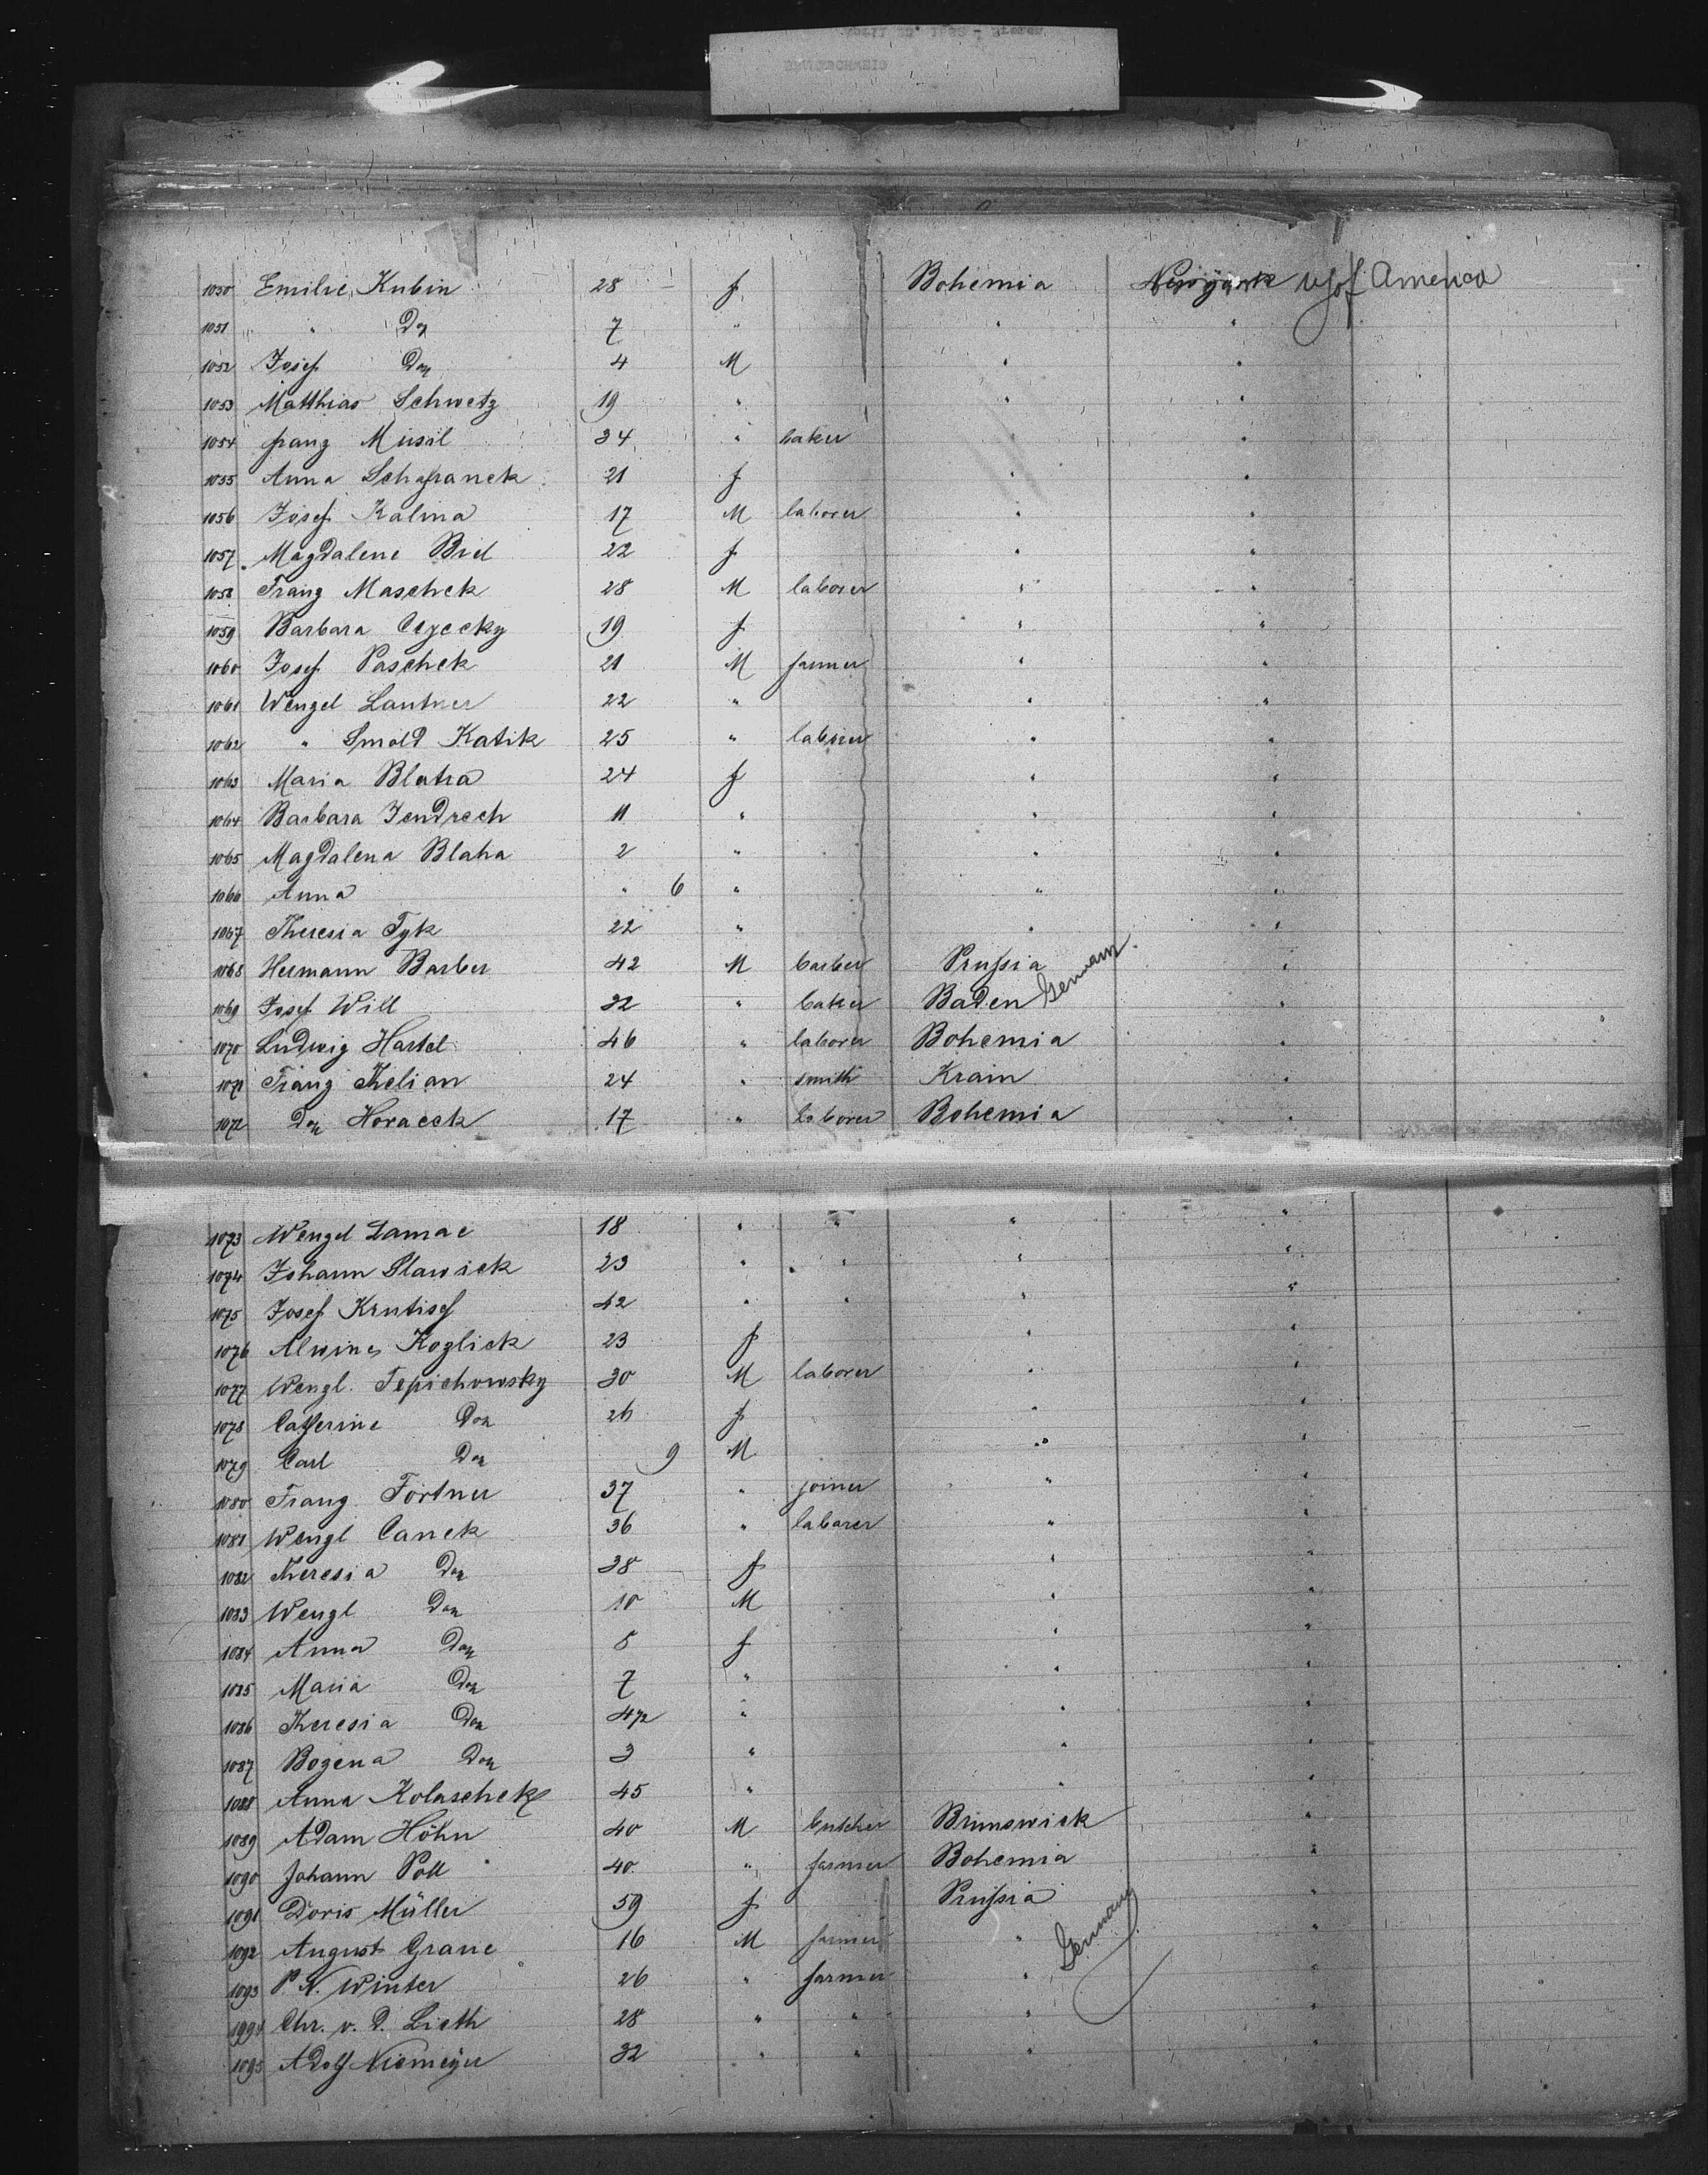 1050 Emilie Kubin 28 f Bohemia Newyork US of America
1051 " Do 7 " " "
1052 Josef Do 4 M " "
1053 Matthias Schwetz 19 " " "
1054 franz Musil 34 " baker " "
1055 Anna Schafranek 21 f " "
1056 Josef Kalina 17 M laborer " "
1057 Magdalene Biel 22 f " "
1058 Franz Maschek 28 M laborer " "
1059 Barbara 19 f " "
1060 Josef Paschek 21 M farmer " "
1061 Wenzel Lantner 22 " " "
1062 " Smold Katik 25 " laborer " "
1063 Maria Blaha 24 f " "
1064 Barbara Jendrech 11 " " "
1065 Magdalena Blaha 2 " " "
1066 Anna " 6 " " "
1067 Theresia Tyk 22 " " "
1068 Hermann Barber 42 M barber Prussia "
1069 Josef Will 32 " baker Baden German "
1070 Ludwig Hartel 46 " laborer Bohemia "
1071 Franz Thelian 24 " smith Krain "
1072 Do Horacek 17 " laborer Bohemia "
1073 Wenzel Lamac 18 " " " "
1074 Johann Slawick 23 " " " "
1075 Josef Krutisch 42 " " " "
1076 Alwine Koglick 23 f " "
1077 Wenzl. Tepichowsky 30 M laborer " "
1078 Catherine Do 26 f " "
1079 Carl Do 9 M " "
1080 Franz Fortner 37 " joiner " "
1081 Wenzl Canek 36 " laborer " "
1082 Theresia Do 38 f " "
1083 Wenzl Do 10 M " "
1084 Anna Do 8 f " "
1085 Maria Do 7 " " "
1086 Theresia Do 4 1/2 " " "
1087 Bozena Do 3 " " "
1088 Anna Kolaschek 45 " " "
1089 Adam Höhn 40 M butcher Brunswick "
1090 Johann Poll 40 " farmer Bohemia "
1091 Doris Müller 59 f Prussia "
1092 August Grane 16 M farmer " Germany "
1093 P. N. Winter 26 " farmer " "
1094 Chr. v. D. Lieth 28 " " " "
1095 Adolf Niemeyer 32 " " " "